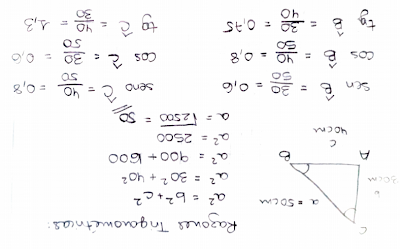 Razones Trigonométricas:
C
a = 50cm
b
30cm
A
B
c
40cm
a² = b² + c²
a² = 30² + 40²
a² = 900 + 1600
a² = 2500
a = √2500 = 50
sen B̂ = 30/50 = 0,6
seno Ĉ = 40/50 = 0,8
cos B̂ = 40/50 = 0,8
cos Ĉ = 30/50 = 0,6
tg B̂ = 30/40 = 0,75
tg Ĉ = 40/30 = 1,3